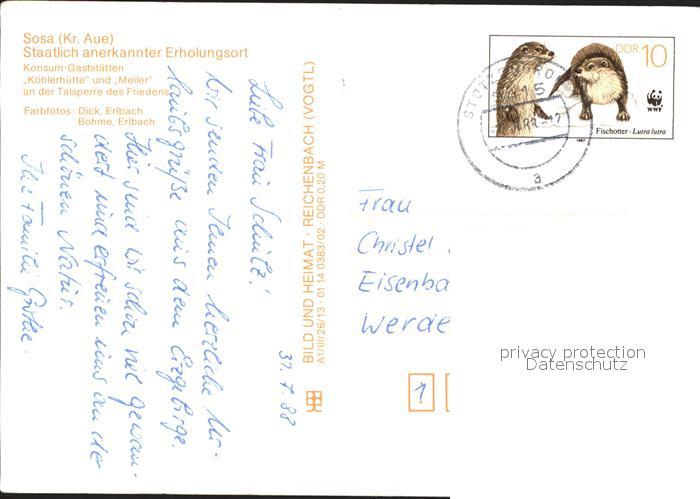 Sosa (Kr. Aue)
Staatlich anerkannter Erholungsort
Konsum-Gaststätten
„Köhlerhütte" und „Meiler"
an der Talsperre des Friedens
Farbfotos: Dick, Erlbach
Böhme, Erlbach
31. 7. 88
Liebe Frau Schulz!
Wir senden Ihnen herzliche Ur-
laubsgrüße aus dem Erzgebirge.
Hier sind wir schon viel gewan-
dert und erfreuen uns an der
schönen Natur.
Ihre Familie
BILD UND HEIMAT · REICHENBACH (VOGTL)
A1/III/26/13 · 01 14 0383/02 · DDR 0,20 M
DDR 10
WWF
Fischotter - Lutra lutra
a
Frau
Christel
Eisenba
Werde
1
privacy protection
Datenschutz